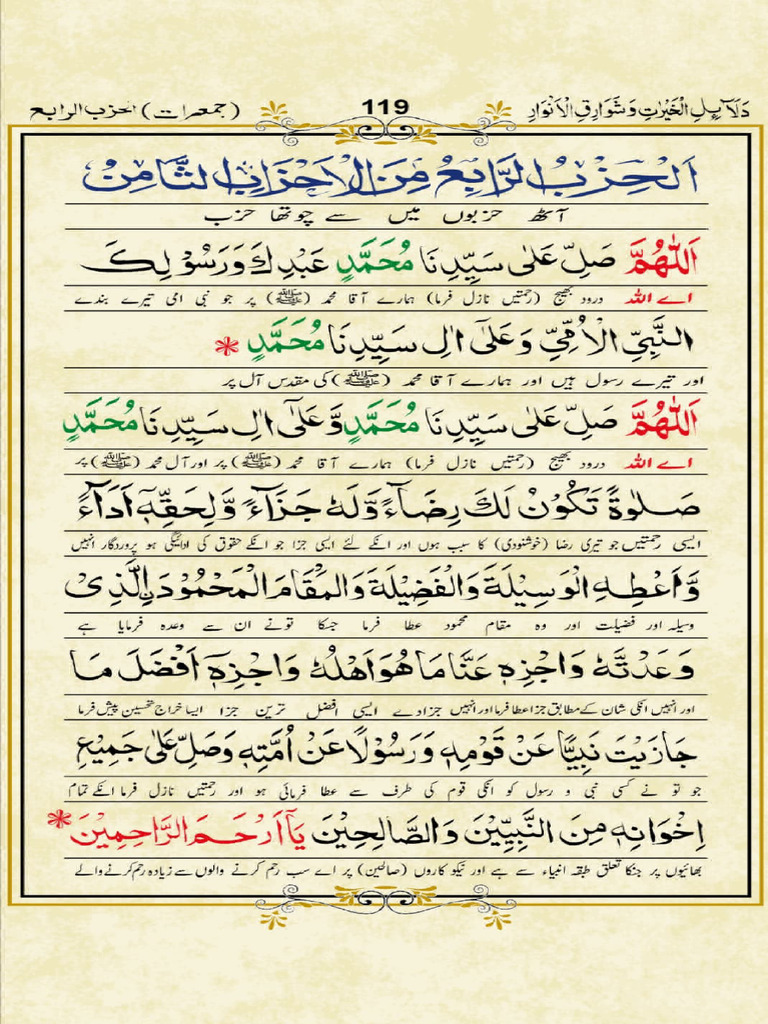 دَلَآئِلِ الْخَيْرَاتِ وَشَوَارِقِ الْاَنْوَارِ 119 (جمعرات) الحزب الرابع
اَلْحِزْبُ الرَّابِعُ مِنَ الْاَحْزَابِ الثَّامِنْ
آٹھ حزبوں میں سے چوتھا حزب
اَللّٰهُمَّ صَلِّ عَلٰى سَيِّدِنَا مُحَمَّدٍ عَبْدِكَ وَرَسُوْلِكَ
اے اللہ درود بھیج (رحمتیں نازل فرما) ہمارے آقا محمد (ﷺ) پر جو نبی امی تیرے بندے
النَّبِيِّ الْاُمِّيِّ وَعَلٰٓى اٰلِ سَيِّدِنَا مُحَمَّدٍ *
اور تیرے رسول ہیں اور ہمارے آقا محمد (ﷺ) کی مقدس آل پر
اَللّٰهُمَّ صَلِّ عَلٰى سَيِّدِنَا مُحَمَّدٍ وَّعَلٰٓى اٰلِ سَيِّدِنَا مُحَمَّدٍ
اے اللہ درود بھیج (رحمتیں نازل فرما) ہمارے آقا محمد (ﷺ) پر اور آل محمد (ﷺ) پر
صَلٰوةً تَكُوْنُ لَكَ رِضَآءً وَّلَهٗ جَزَآءً وَّلِحَقِّهٖٓ اَدَآءً
ایسی رحمتیں جو تیری رضا (خوشنودی) کا سبب ہوں اور انکے لئے ایسی جزا جو انکے حقوق کی ادائیگی ہو پروردگار انہیں
وَّاَعْطِهِ الْوَسِيْلَةَ وَالْفَضِيْلَةَ وَالْمَقَامَ الْمَحْمُوْدَ ۨالَّذِىْ
وسیلہ اور فضیلت اور وہ مقام محمود عطا فرما جسکا تونے ان سے وعدہ فرمایا ہے
وَعَدْتَّهٗ وَاجْزِهٖ عَنَّا مَا هُوَ اَهْلُهٗ وَاجْزِهٖٓ اَفْضَلَ مَا
اور انہیں انکی شان کے مطابق جزا عطا فرما اور انہیں جزا دے ایسی افضل ترین جزا ایسا خراج تحسین پیش فرما
جَازَيْتَ نَبِيًّا عَنْ قَوْمِهٖ وَرَسُوْلًا عَنْ اُمَّتِهٖ وَصَلِّ عَلٰى جَمِيْعِ
جو تو نے کسی نبی و رسول کو انکی قوم کی طرف سے عطا فرمائی ہو اور رحمتیں نازل فرما انکے تمام
اِخْوَانِهٖ مِنَ النَّبِيِّيْنَ وَالصَّالِحِيْنَ يَآ اَرْحَمَ الرَّاحِمِيْنَ *
بھائیوں پر جنکا تعلق طبقہ انبیاء سے ہے اور نیکو کاروں (صالحین) پر اے سب رحم کرنے والوں سے زیادہ رحم کرنے والے